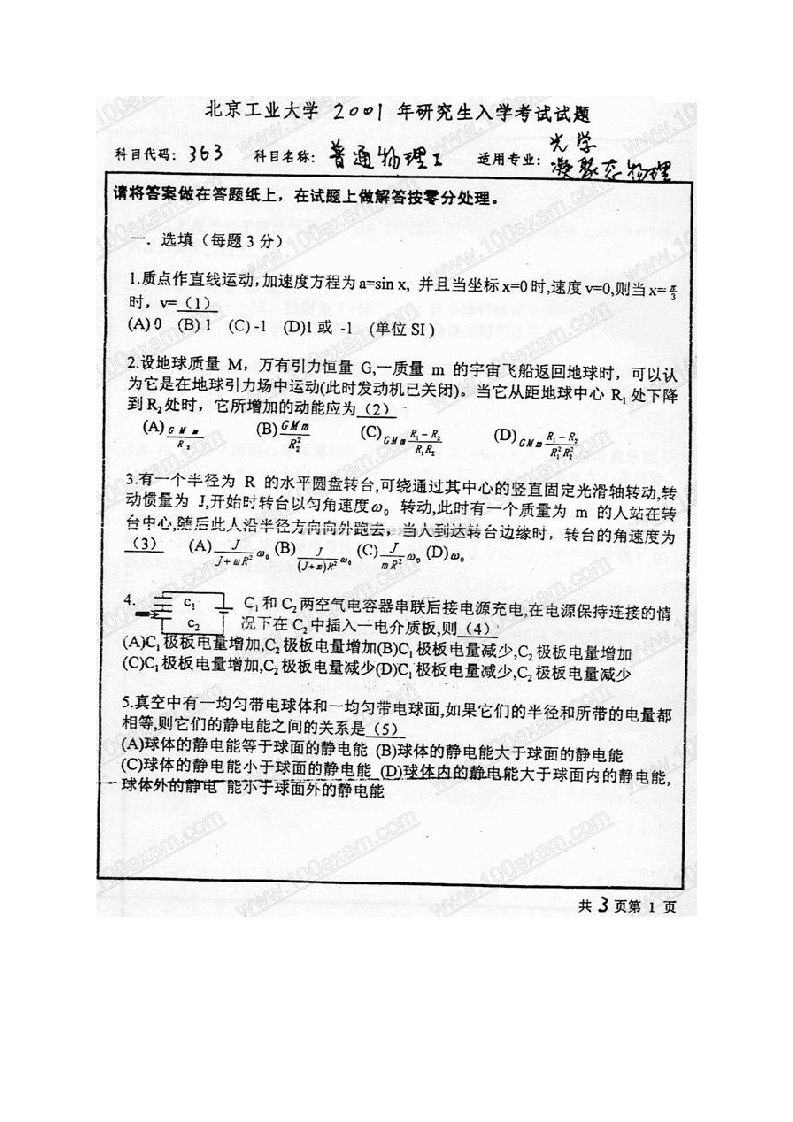 北京工业大学 2001 年研究生入学考试试题
科目代码: 363 科目名称: 普通物理I 适用专业: 光学
凝聚态物理
请将答案做在答题纸上，在试题上做解答按零分处理。
一. 选填（每题 3 分）
1.质点作直线运动,加速度方程为 a=sin x, 并且当坐标 x=0 时,速度 v=0,则当 x=π/3
时，v= (1)
(A) 0 (B) 1 (C) -1 (D)1 或 -1 (单位 SI )
2.设地球质量 M，万有引力恒量 G,一质量 m 的宇宙飞船返回地球时，可以认
为它是在地球引力场中运动(此时发动机已关闭)。当它从距地球中心 R₁ 处下降
到 R₂ 处时，它所增加的动能应为 (2)
(A) GMm/R₂ (B) GMm/R₂² (C) GMm (R₁-R₂)/(R₁R₂) (D) GMm (R₁-R₂)/(R₁²R₂²)
3.有一个半径为 R 的水平圆盘转台,可绕通过其中心的竖直固定光滑轴转动,转
动惯量为 J,开始时转台以匀角速度ω₀ 转动,此时有一个质量为 m 的人站在转
台中心,随后此人沿半径方向向外跑去，当人到达转台边缘时，转台的角速度为
(3) (A) J/(J+mR²) ω₀ (B) J/((J+m)R²) ω₀ (C) J/(mR²) ω₀ (D) ω₀
4. C₁ C₂ C₁ 和 C₂ 两空气电容器串联后接电源充电,在电源保持连接的情
况下在 C₂ 中插入一电介质板,则 (4)
(A)C₁ 极板电量增加,C₂ 极板电量增加(B)C₁ 极板电量减少,C₂ 极板电量增加
(C)C₁ 极板电量增加,C₂ 极板电量减少(D)C₁ 极板电量减少,C₂ 极板电量减少
5.真空中有一均匀带电球体和一均匀带电球面,如果它们的半径和所带的电量都
相等,则它们的静电能之间的关系是 (5)
(A)球体的静电能等于球面的静电能 (B)球体的静电能大于球面的静电能
(C)球体的静电能小于球面的静电能 (D)球体内的静电能大于球面内的静电能,
球体外的静电 能小于球面外的静电能
共 3 页第 1 页
www.100exam.com